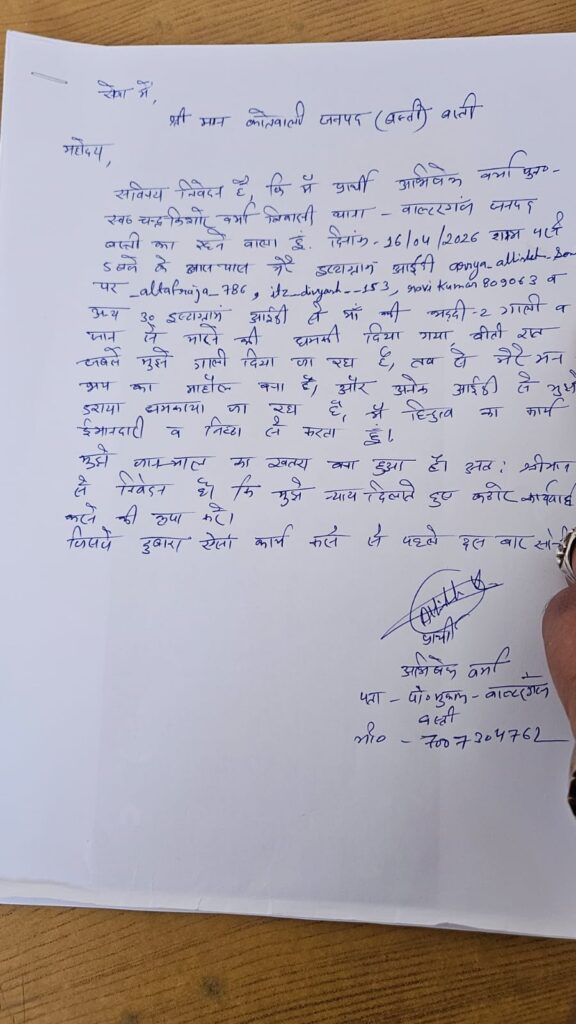 सेवा में,
श्री मान कोतवाली जनपद (बस्ती) बस्ती
महोदय,
सविनय निवेदन है, कि मैं प्रार्थी अभिषेक वर्मा पुत्र-
स्व० चन्द्र किशोर वर्मा निवासी थाना - वाल्टरगंज जनपद
बस्ती का रहने वाला हूं. दिनांक - 16/04/2026 शाम
5 बजे के आस पास मेरे इंस्टाग्राम आईडी
पर _altafraja_786, itz_divyansh--153, ravi kumar 809063 व
अन्य 30 इंस्टाग्राम आईडी से माँ की भद्दी-2 गाली व
जान से मारने की धमकी दिया गया, बीती रात
जबसे मुझे गाली दिया जा रहा है, तब से मेरे मन
भय का माहौल बना है, और अनेक आईडी से मुझे
डराया धमकाया जा रहा है, मैं का कार्य
ईमानदारी व निष्ठा से करता हूं।
मुझे जान-माल का खतरा बना हुआ है। अतः श्रीमान
से निवेदन है। कि मुझे न्याय दिलाते हुए कठोर कार्यवाही
करने की कृपा करें।
जिससे दुबारा ऐसा कार्य करने से पहले दस बार
प्रार्थी
अभिषेक वर्मा
पता - पो० मुकाम - वाल्टरगंज
बस्ती
मो० - 7007304762